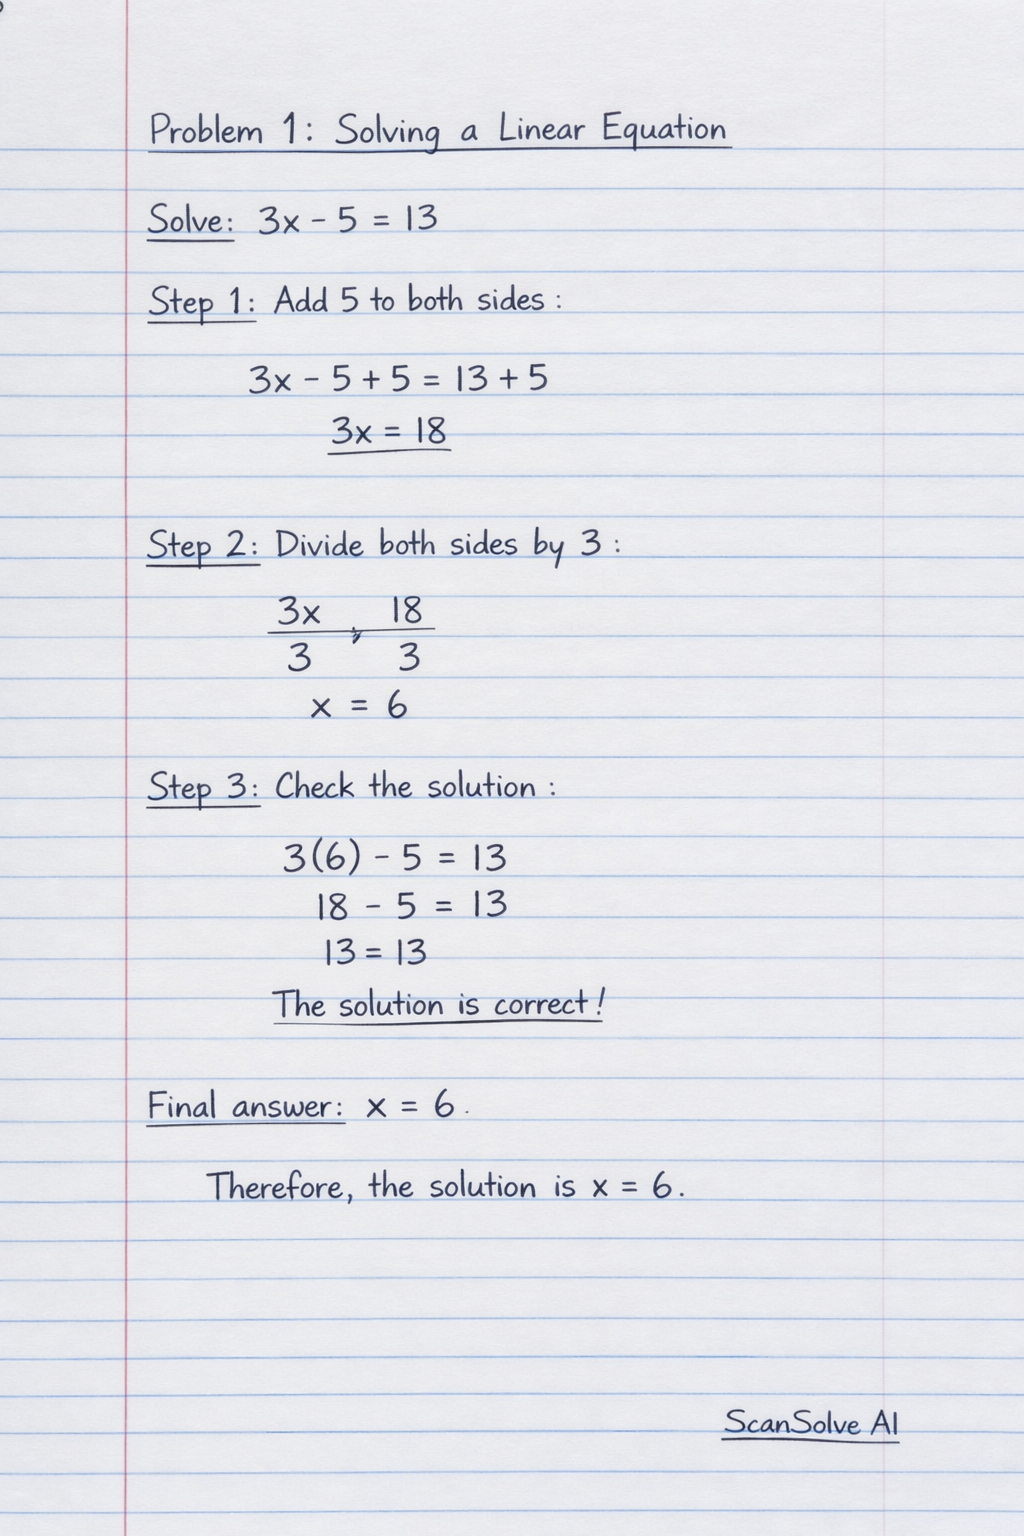 Problem 1: Solving a Linear Equation
Solve: 3x - 5 = 13
Step 1: Add 5 to both sides :
3x - 5 + 5 = 13 + 5
3x = 18
Step 2: Divide both sides by 3 :
3x , 18
3 3
x = 6
Step 3: Check the solution :
3(6) - 5 = 13
18 - 5 = 13
13 = 13
The solution is correct!
Final answer: x = 6 .
Therefore, the solution is x = 6.
ScanSolve AI